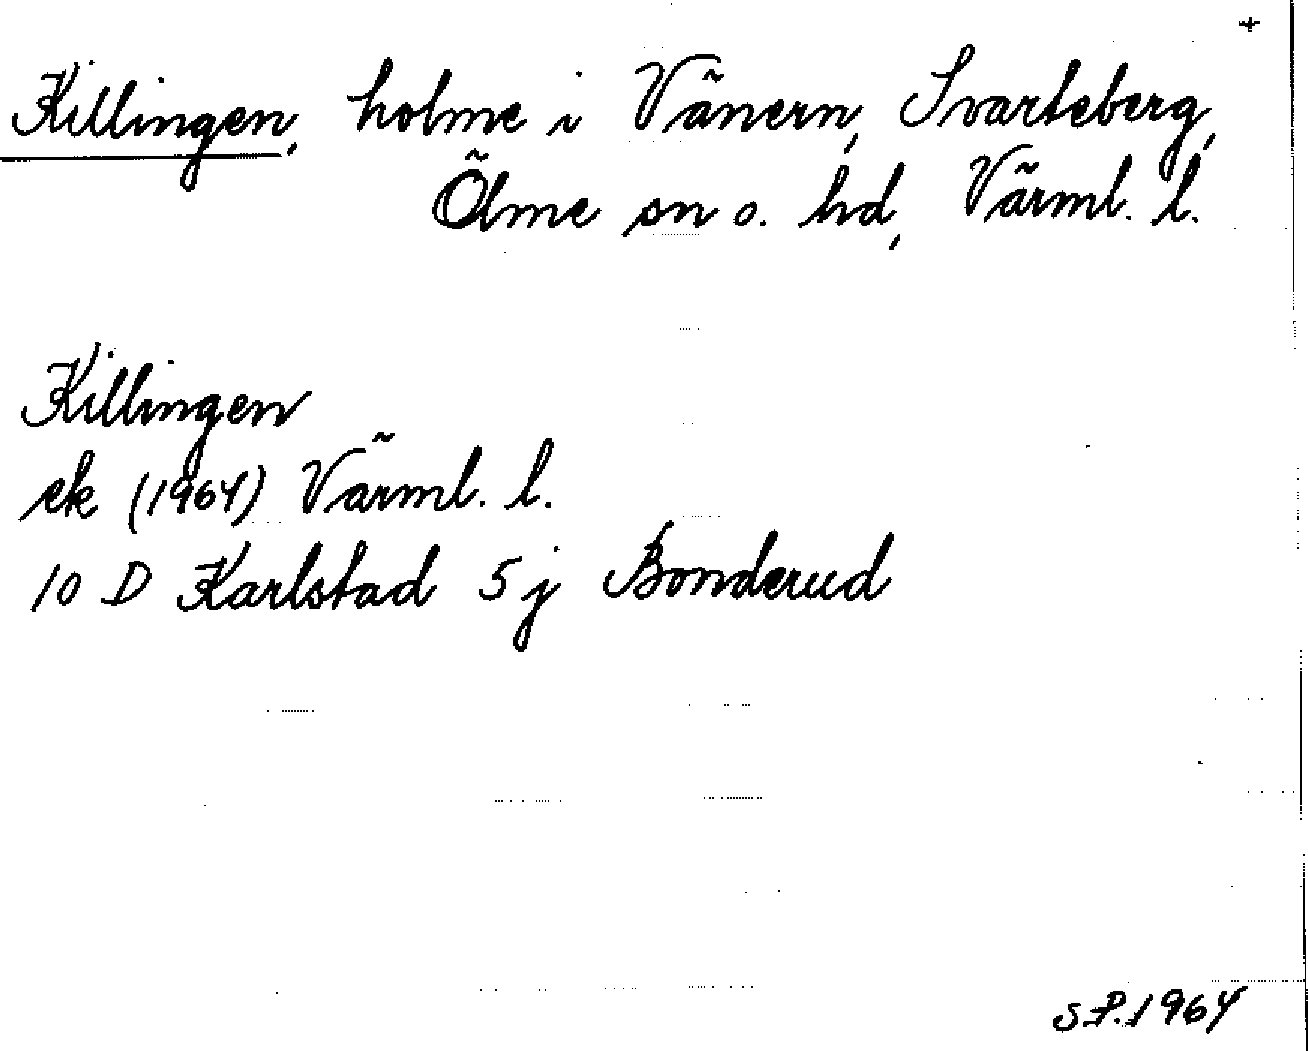 +
Killingen, holme i Vänern, Svarteberg,
Ölme sn o. hd, Värml. l.
Killingen
ek (1964) Värml. l.
10 D Karlstad 5 j Bonderud
S.P. 1964